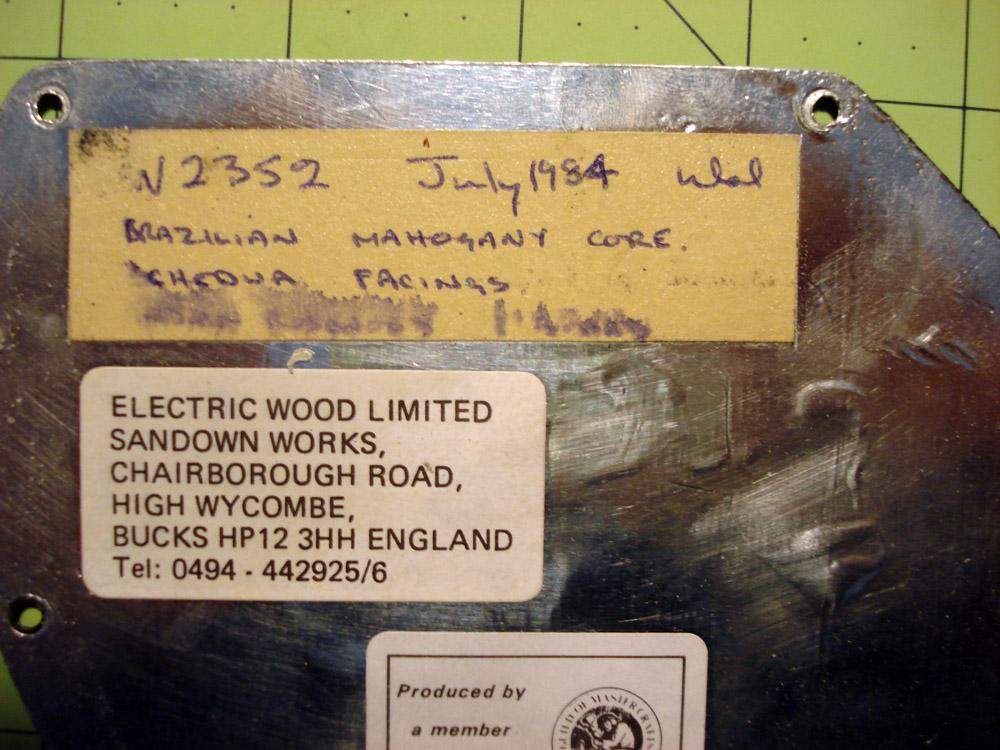 W2352 July 1984 Wal
BRAZILIAN MAHOGANY CORE.
SHEDUA FACINGS
ELECTRIC WOOD LIMITED
SANDOWN WORKS,
CHAIRBOROUGH ROAD,
HIGH WYCOMBE,
BUCKS HP12 3HH ENGLAND
Tel: 0494 - 442925/6
Produced by
a member
GUILD OF MASTER CRAFT